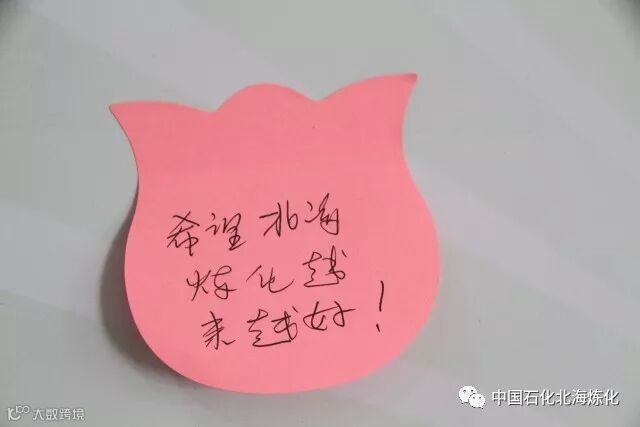 希望北海
炼化越
来越好！
中国石化北海炼化
大数跨境